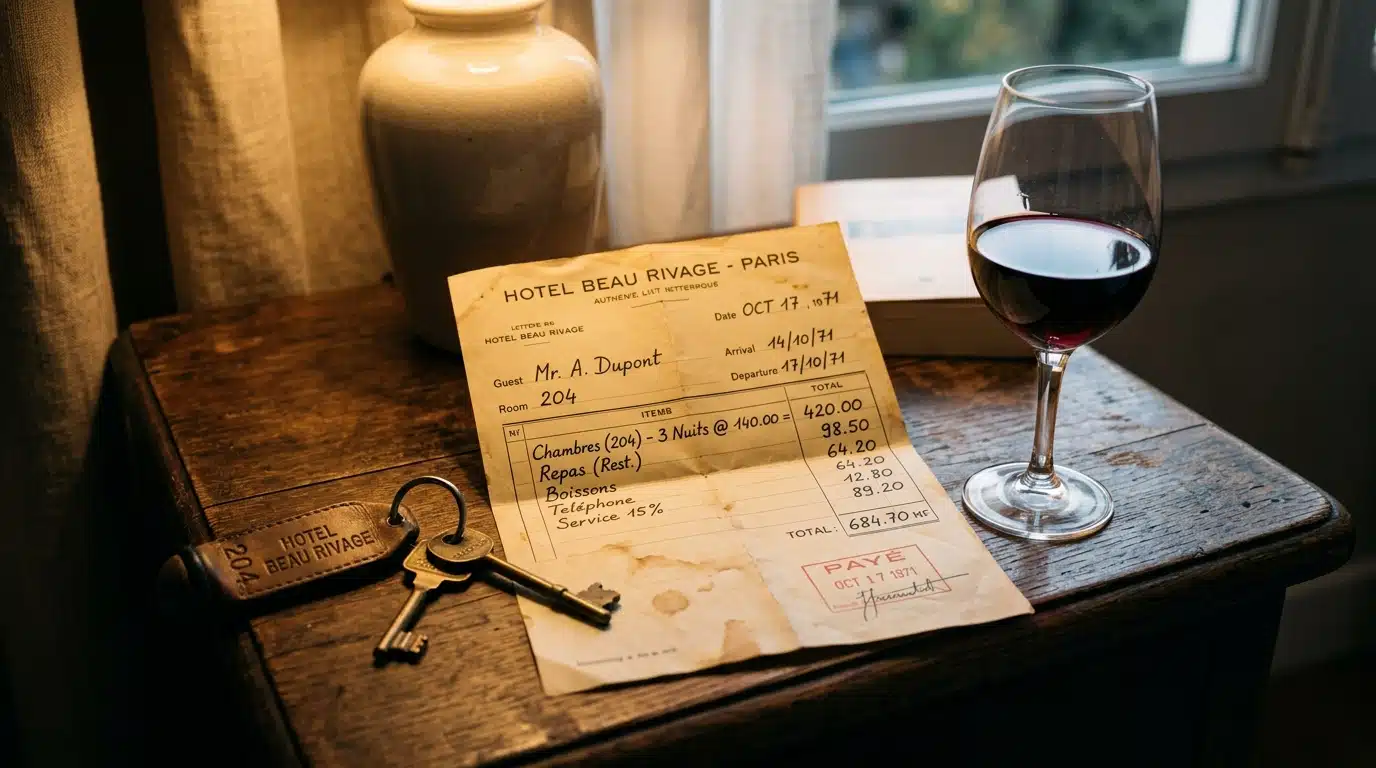 HOTEL BEAU RIVAGE - PARIS
HOTEL BEAU RIVAGE
Date OCT 17, 1971
Guest Mr. A. Dupont
Arrival 14/10/71
Room 204
Departure 17/10/71
Nr ITEMS TOTAL
Chambres (204) - 3 Nuits @ 140.00 = 420.00
Repas (Rest.) 98.50
Boissons 64.20
64.20
Teléphone 12.80
Service 15% 89.20
TOTAL: 684.70
PAYÉ
OCT 17 1971
204
HOTEL
BEAU RIVAGE